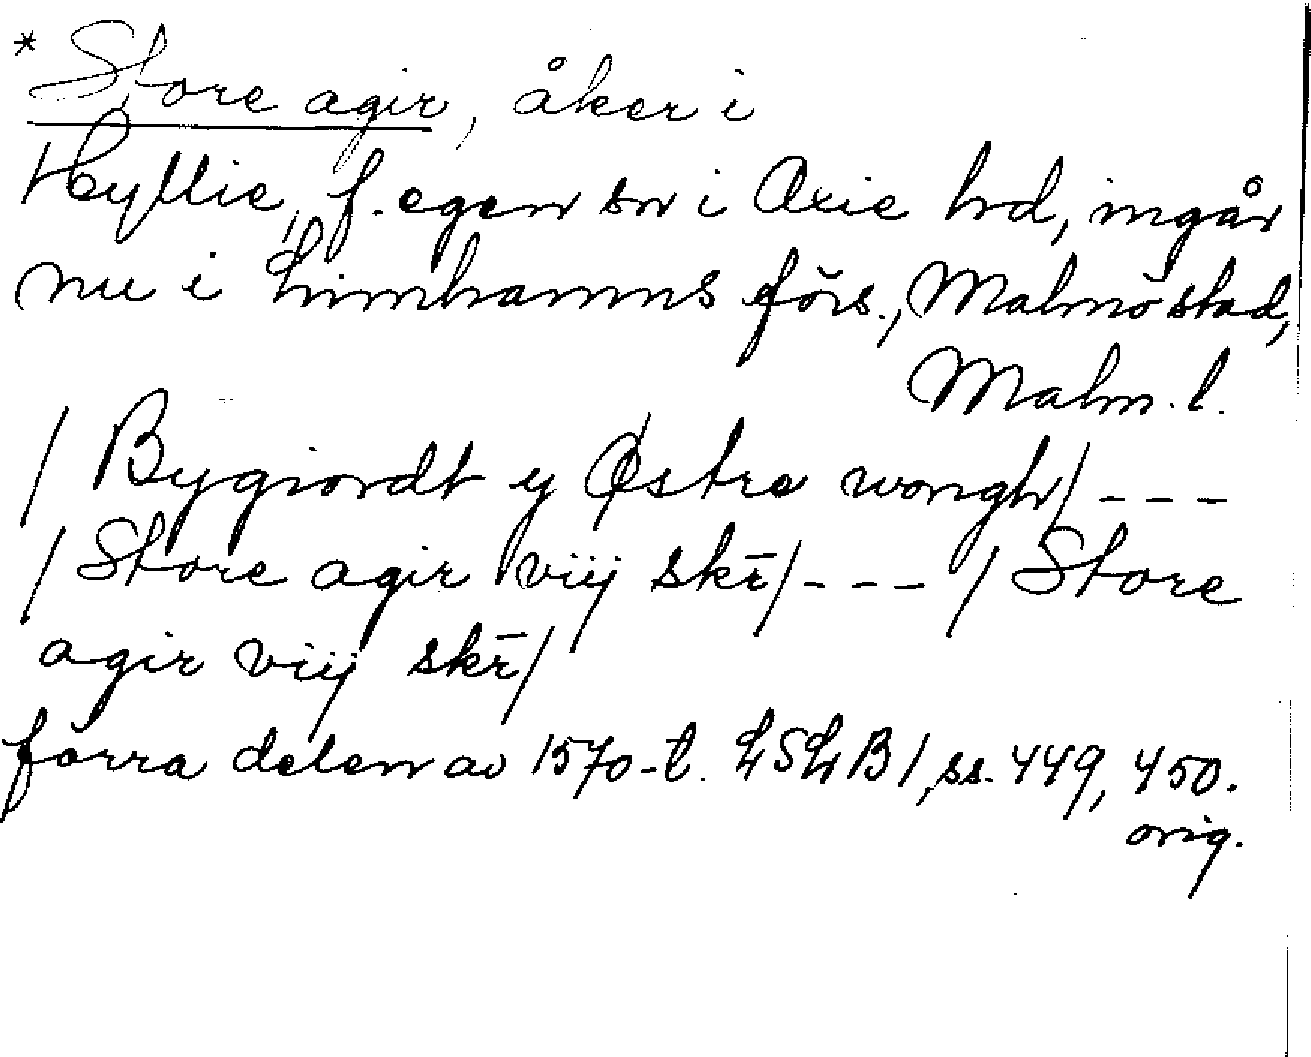 * Store agir, åker i
Hyllie, f. egen sn i Oxie hd, ingår
nu i Limhamns förs., Malmö stad,
Malm. l.
/ Bygiordt y Østre wongh / - - -
/ Store agir viij skr̄ / - - - / Store
agir viij skr̄ /
förra delen av 1570-t. LSLB 1, ss. 449, 450.
orig.